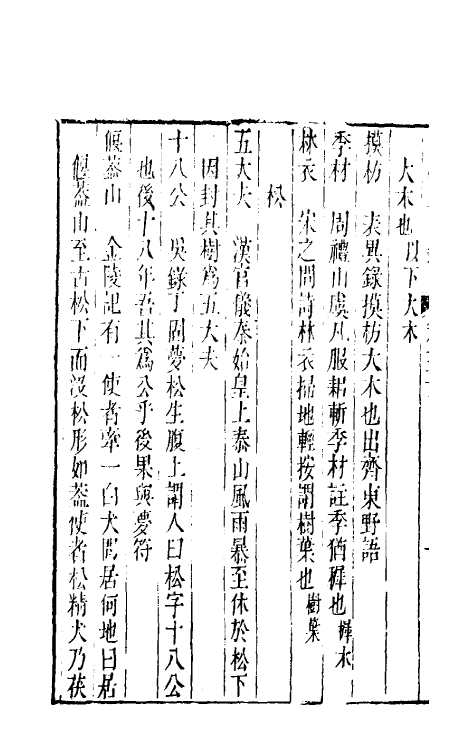 大木也以下大木
摸枋　表異錄摸枋大木也出齊東野語
季材　周禮山虞凡服耜斬季材註季猶穉也穉木
林衣　宋之問詩林衣掃地輕按謂樹葉也樹葉
松
五大夫　漢官儀秦始皇上泰山風雨暴至休於松下
因封其樹爲五大夫
十八公　吳錄丁固夢松生腹上謂人曰松字十八公
也後十八年吾其爲公乎後果與夢符
偃葢山　金陵記有一使者牽一白犬問居何地曰居
偃葢山至古松下而沒松形如葢使者松精犬乃茯